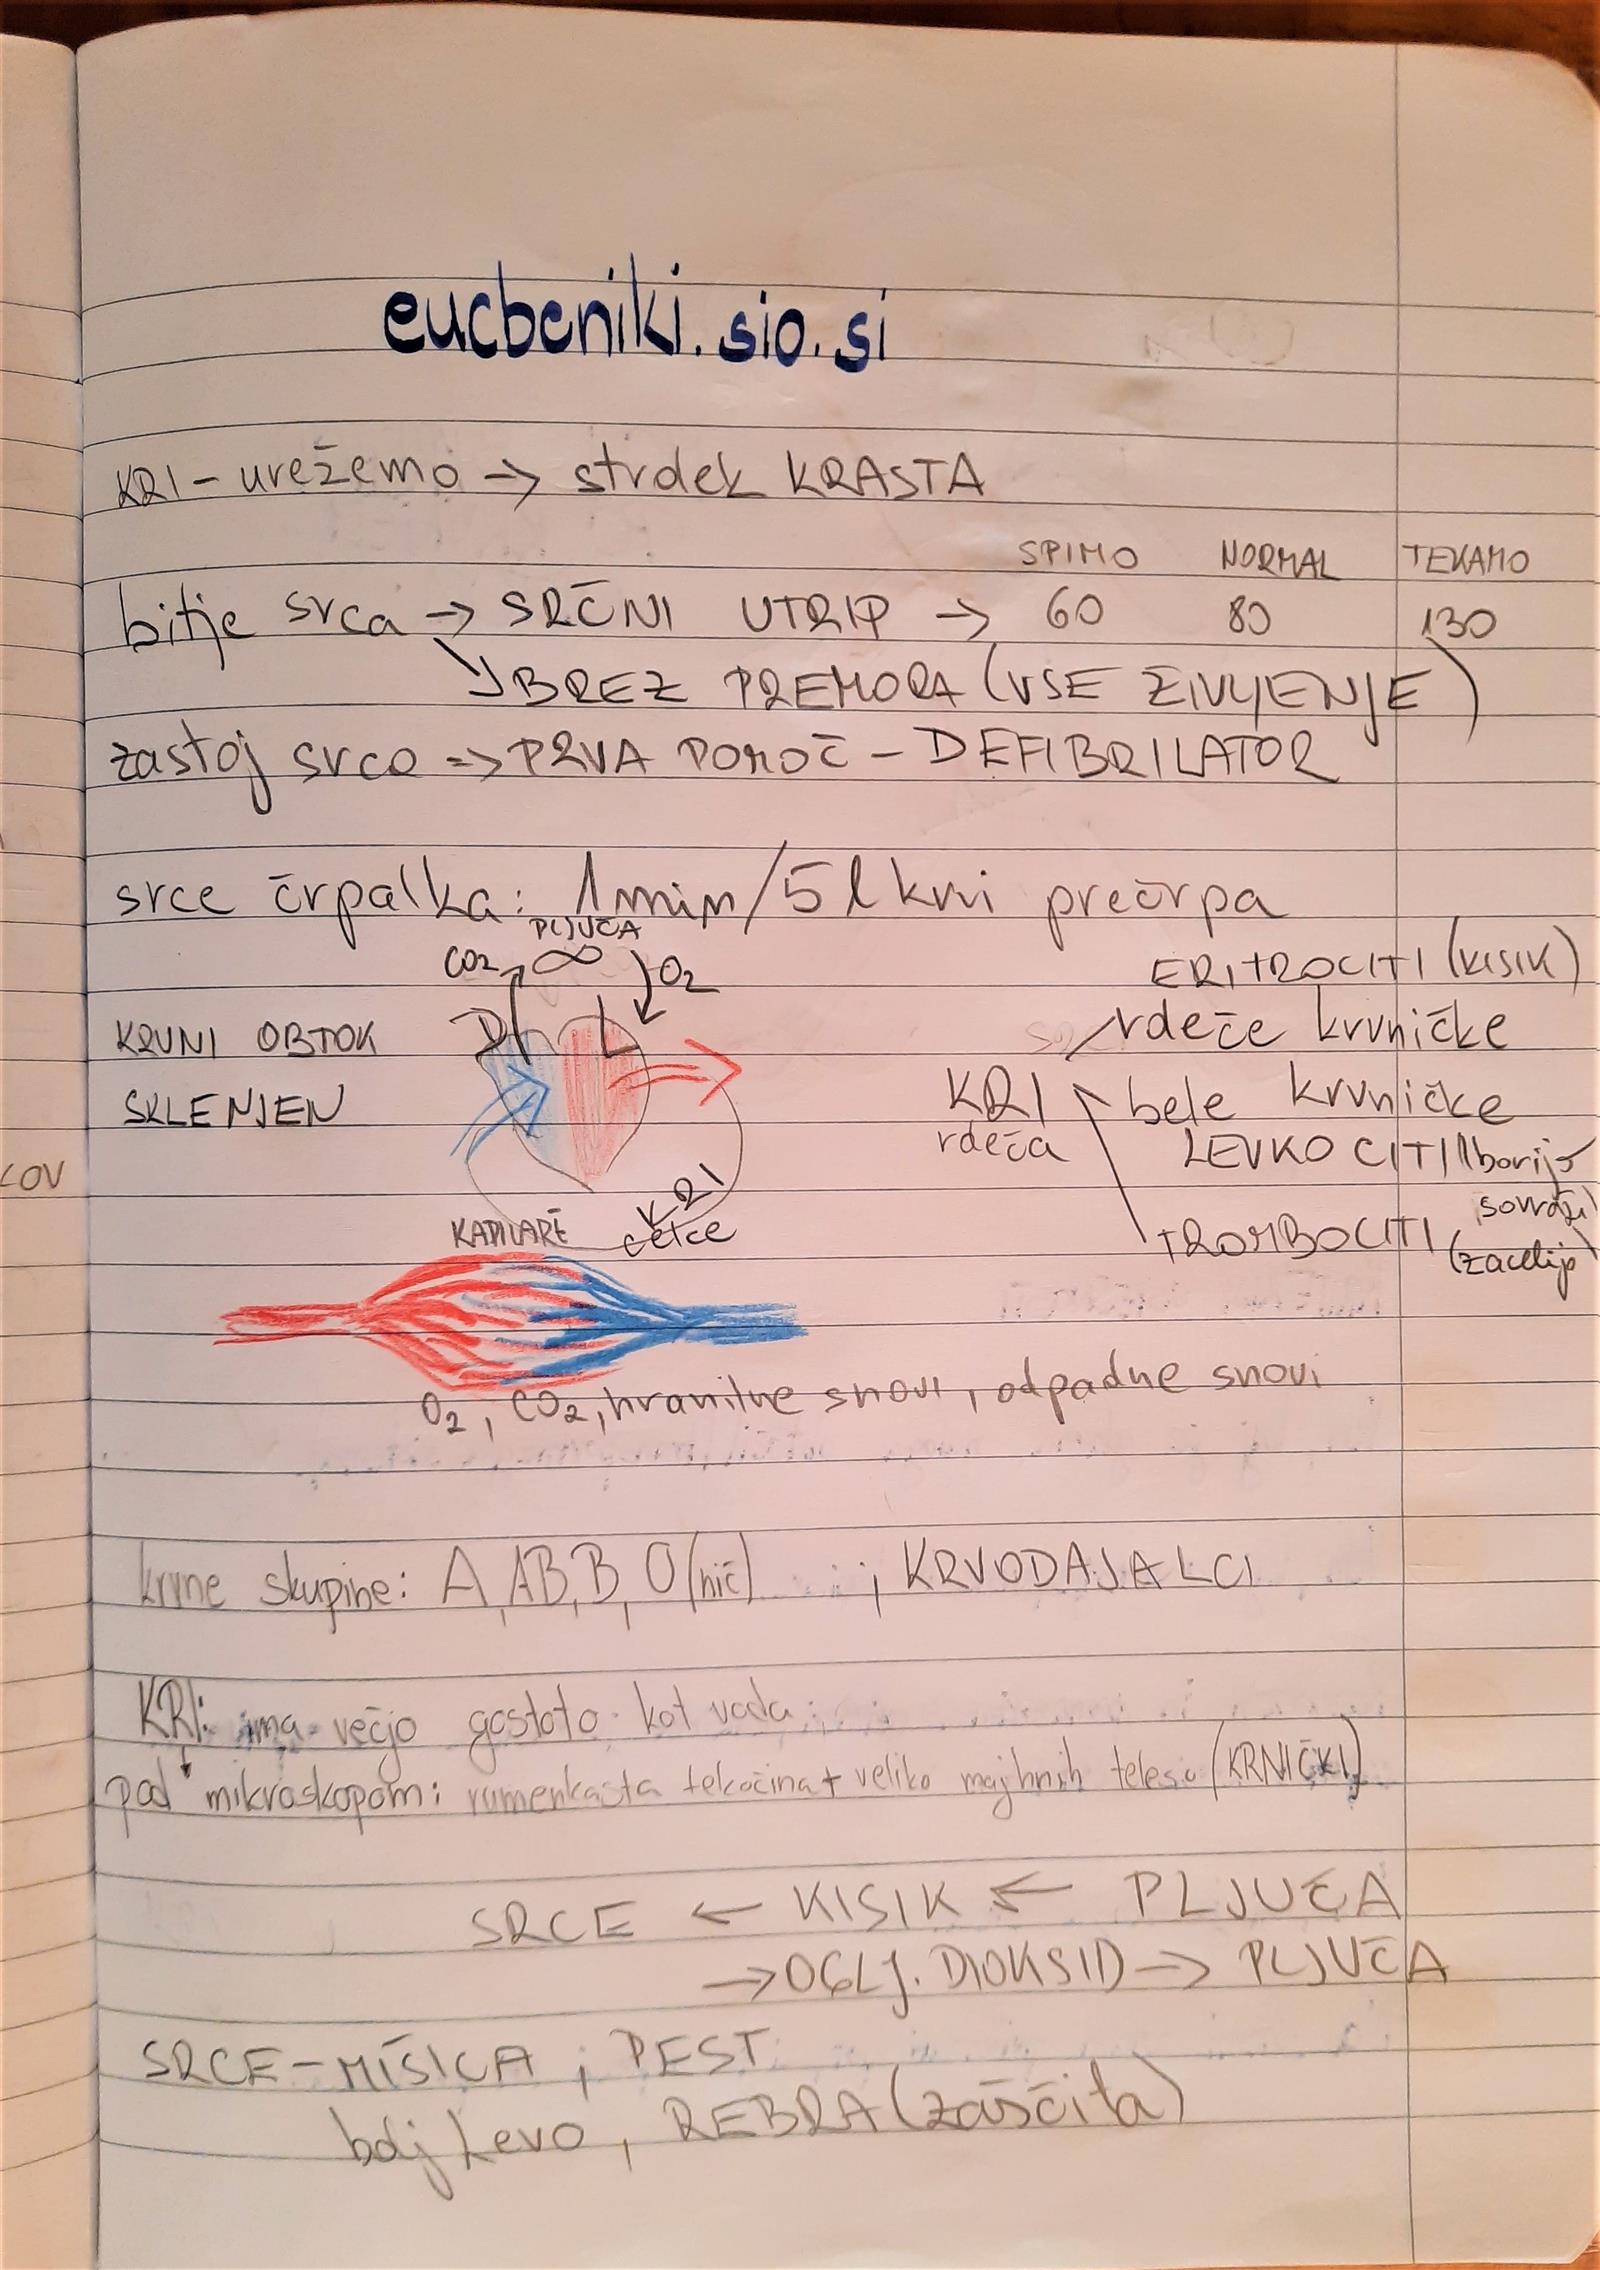 eucbeniki.sio.si
KRI - urežemo → strdek KRASTA
SPIMO NORMAL TEKAMO
bitje srca → SRČNI UTRIP → 60 80 130
↘ BREZ PREMORA (VSE ŽIVLJENJE)
zastoj srca → PRVA POMOČ - DEFIBRILATOR
srce črpalka: 1 min/5 l krvi prečrpa
PLJUČA
CO2 O2
D L
KRVNI OBTOK
SKLENJEN
KRI
celice
KAPILARE
ERITROCITI (KISIK)
rdeče krvničke
KRI bele krvničke
rdeča LEVKOCITI (borijo
TROMBOCITI (zacelijo)
O2, CO2, hranilne snovi, odpadne snovi
krvne skupine: A, AB, B, O (nič) ; KRVODAJALCI
KRI: ima večjo gostoto kot voda
pod mikroskopom: rumenkasta tekočina + veliko majhnih telesc (KRNIČKI)
SRCE ← KISIK ← PLJUČA
→ OGLJ. DIOKSID → PLJUČA
SRCE - MIŠICA ; PEST
bolj Levo, REBRA (zaščita)
LOV